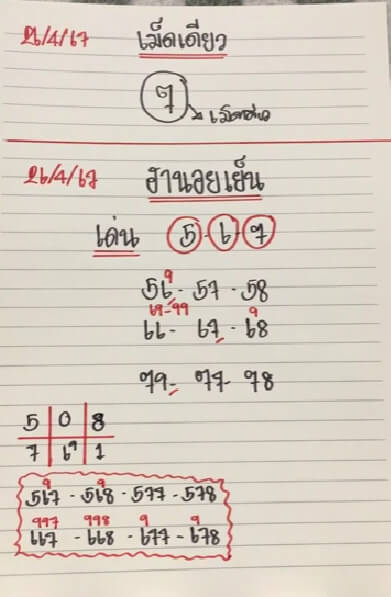 26/4/67 เม็ดเดียว
7
26/4/67 ฮานอยเย็น
เด่น 5-6-7
9
56 - 57 - 58
69-99 9
66 - 67 - 68
79 - 77 - 78
5 0 8
7 69 1
9 9
567 - 568 - 577 - 578
997 998 9 9
667 - 668 - 677 - 678